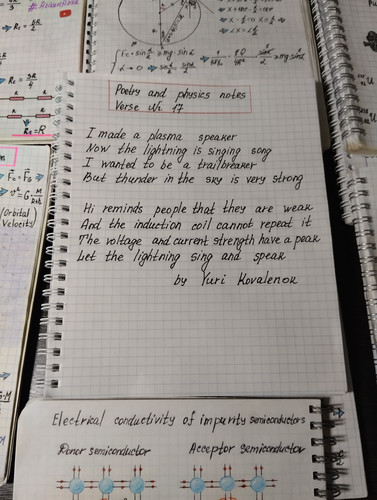 #
R₁ = 5R/4
R₁ = 5R/4
R₂ = R
Poetry and physics notes
Verse № 17
I made a plasma speaker
Now the lightning is singing song
I wanted to be a trailbreaker
But thunder in the sky is very strong
Hi reminds people that they are weak
And the induction coil cannot repeat it
The voltage and current strength have a peak
Let the lightning sing and speak
by Yuri Kovalenok
(Orbital
Velocity)
Electrical conductivity of impurity semiconductors
Donor semiconductor
Acceptor semiconductor